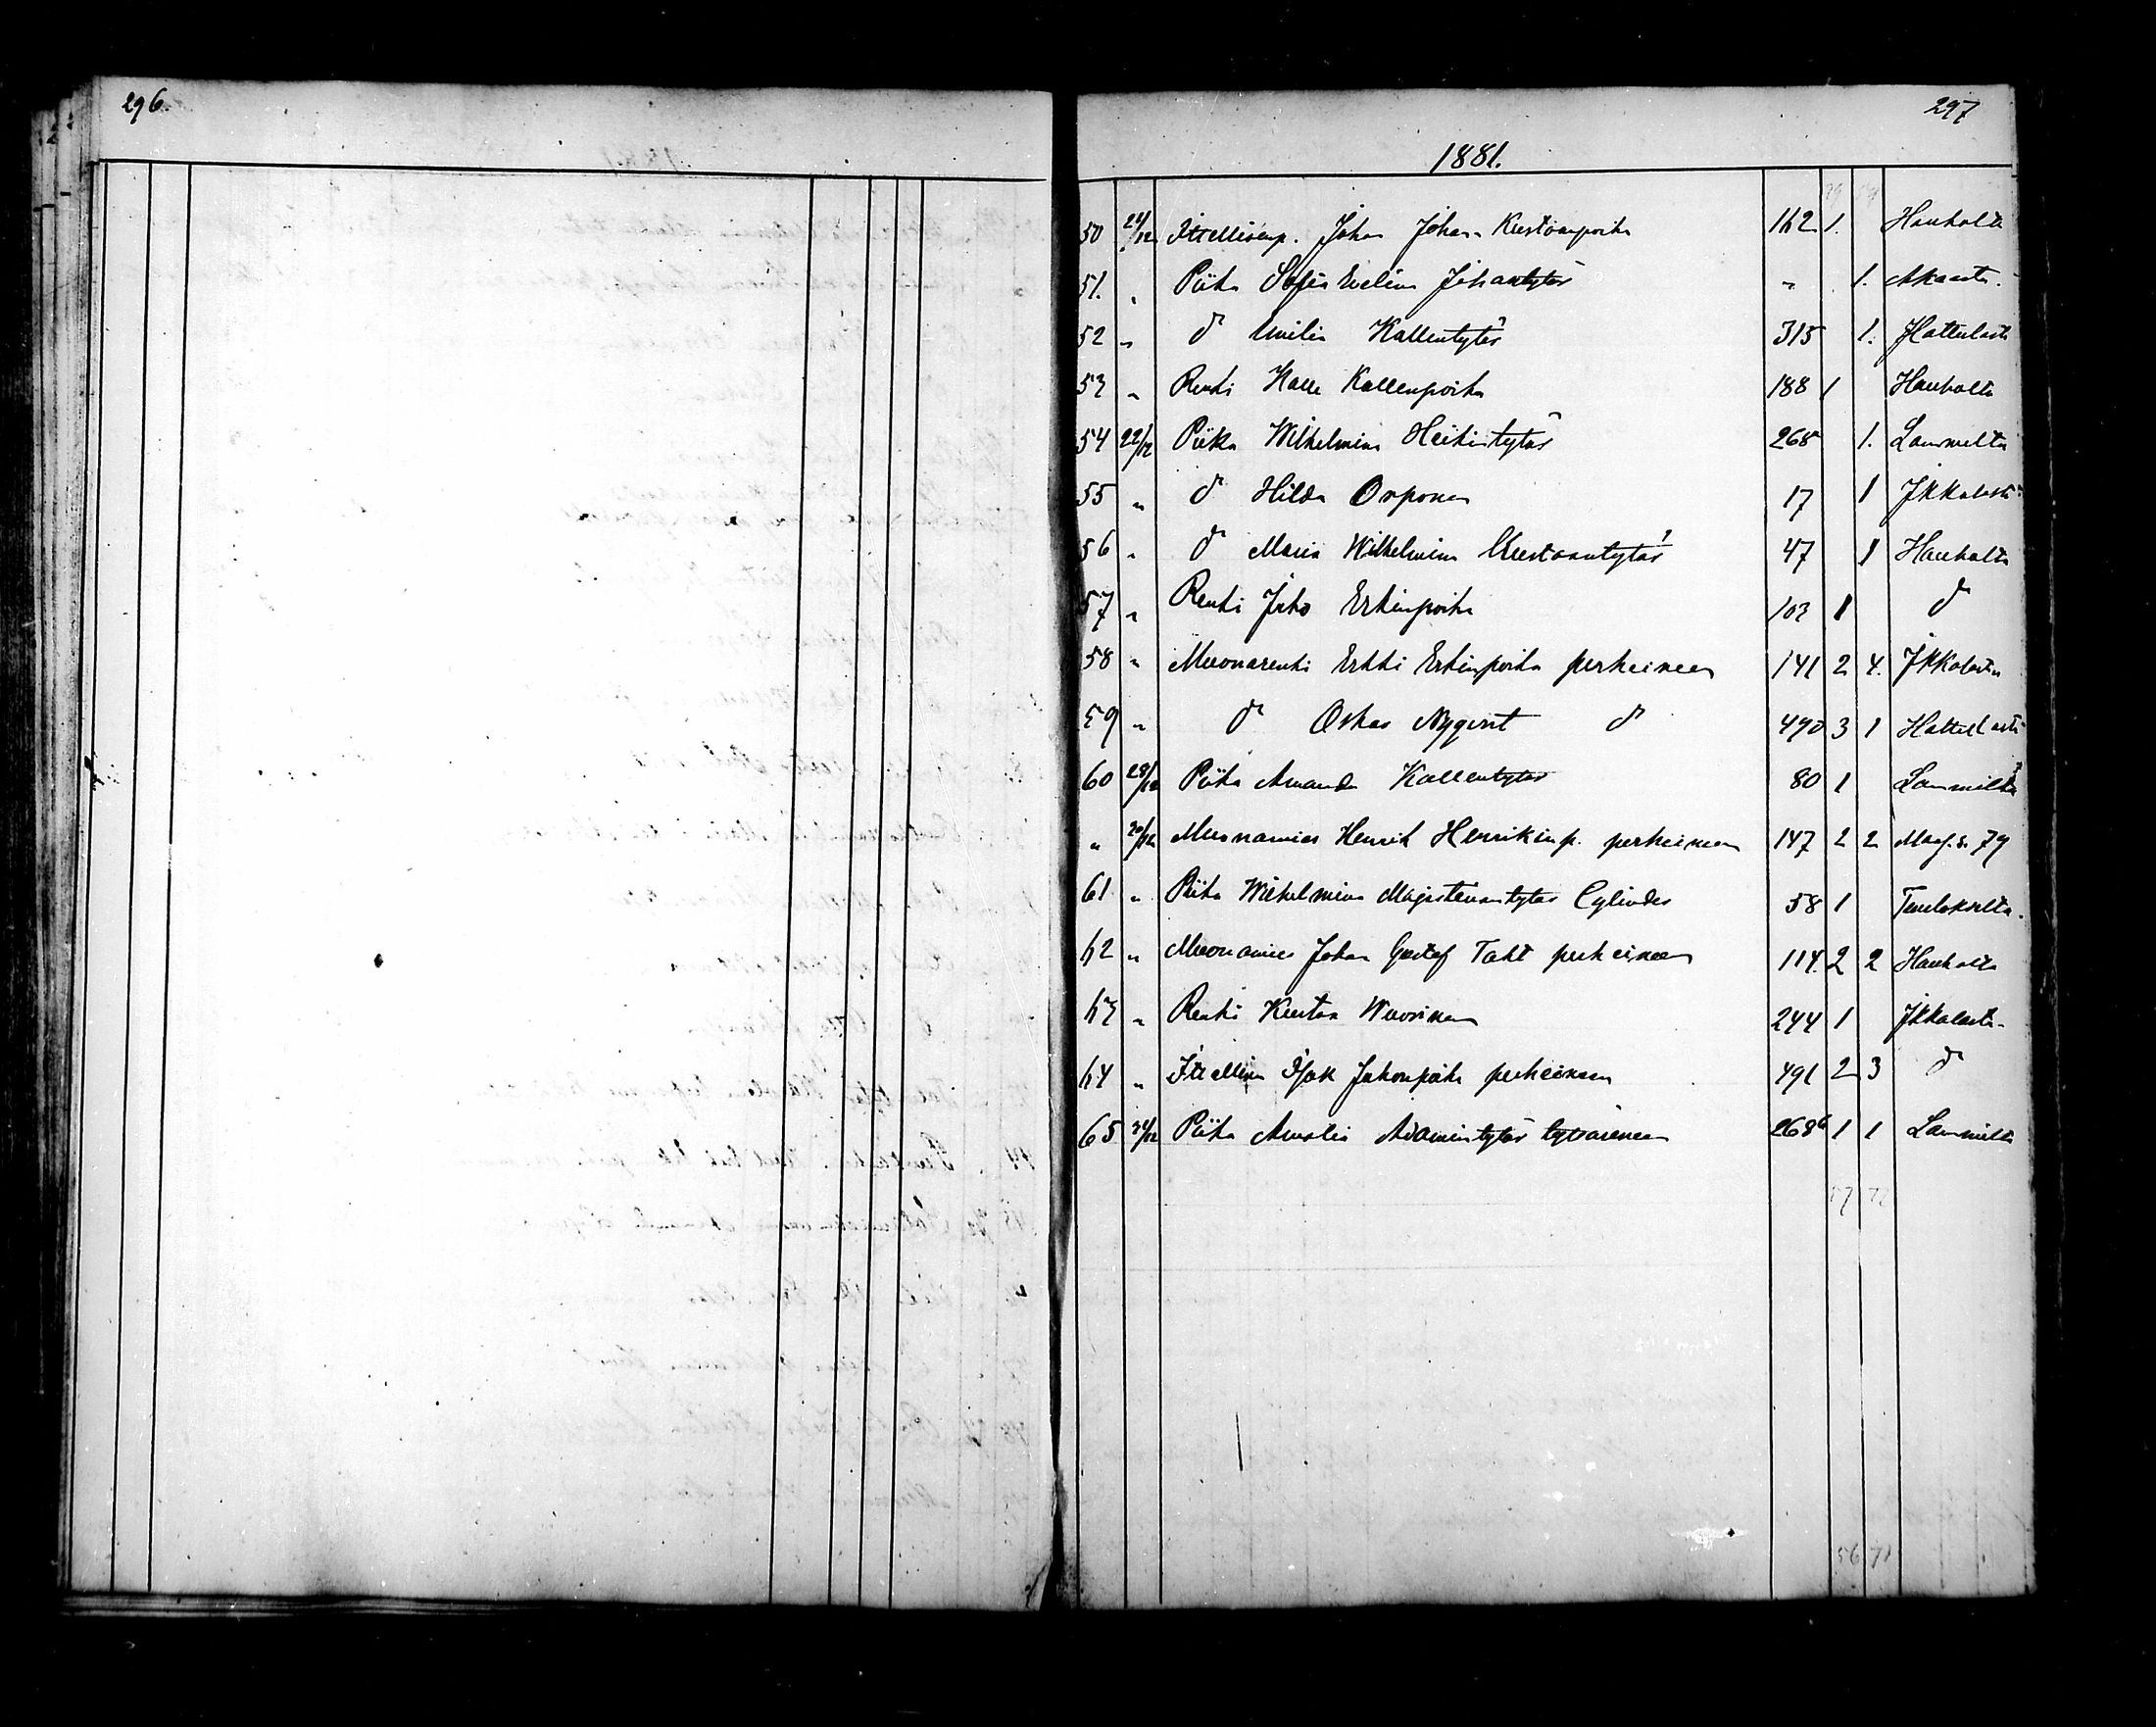 296.
297
1881.
50 21/12 Itsellisenp. Johan Johan Kustaanpoika 162 1. Hauholta
51. " Piika Sofia Evelina Johantytär " 1. Akaasta.
52 " d:o Emilia Kallentytär 315 1. Hattulasta
53 " Renki Kalle Kallenpoika 188 1 Hauholta
54 22/12 Piika Wilhelmina Heikintytär 268 1. Lammilta
55 " d:o Hilda Orponen 17 1 Jkkalasta
56 " d:o Maria Wilhelmina Kustaantytär 47 1 Hauholta
57 " Renki Juho Erkinpoika 103 1 d:o
58 " Muonarenki Erkki Erkinpoika perheineen 141 2 4. Jkkalasta
59 " d:o Oskar Nyqvist d:o 490 3 1 Hattulasta
60 28/12 Piika Amanda Kallentytär 80 1 Lammilta
" 30/12 Muonamies Henrik Henrikinp. perheineen 147 2 2 79
61 " Piika Wilhelmina Cylinder 58 1 Tuulokselta.
62 " Muonamies Johan Gustaf Takt perheineen 114. 2 2 Hauholta
63 " Renki Kustaa Wuorinen 244 1 Jkkalasta
64 " Itsellinen Isak Jakonpoika perheineen 491 2 3 d:o
65 31/12 Piika Amalia Adamintytär tyttärineen 268b 1 1 Lammilta
57 72
56 71